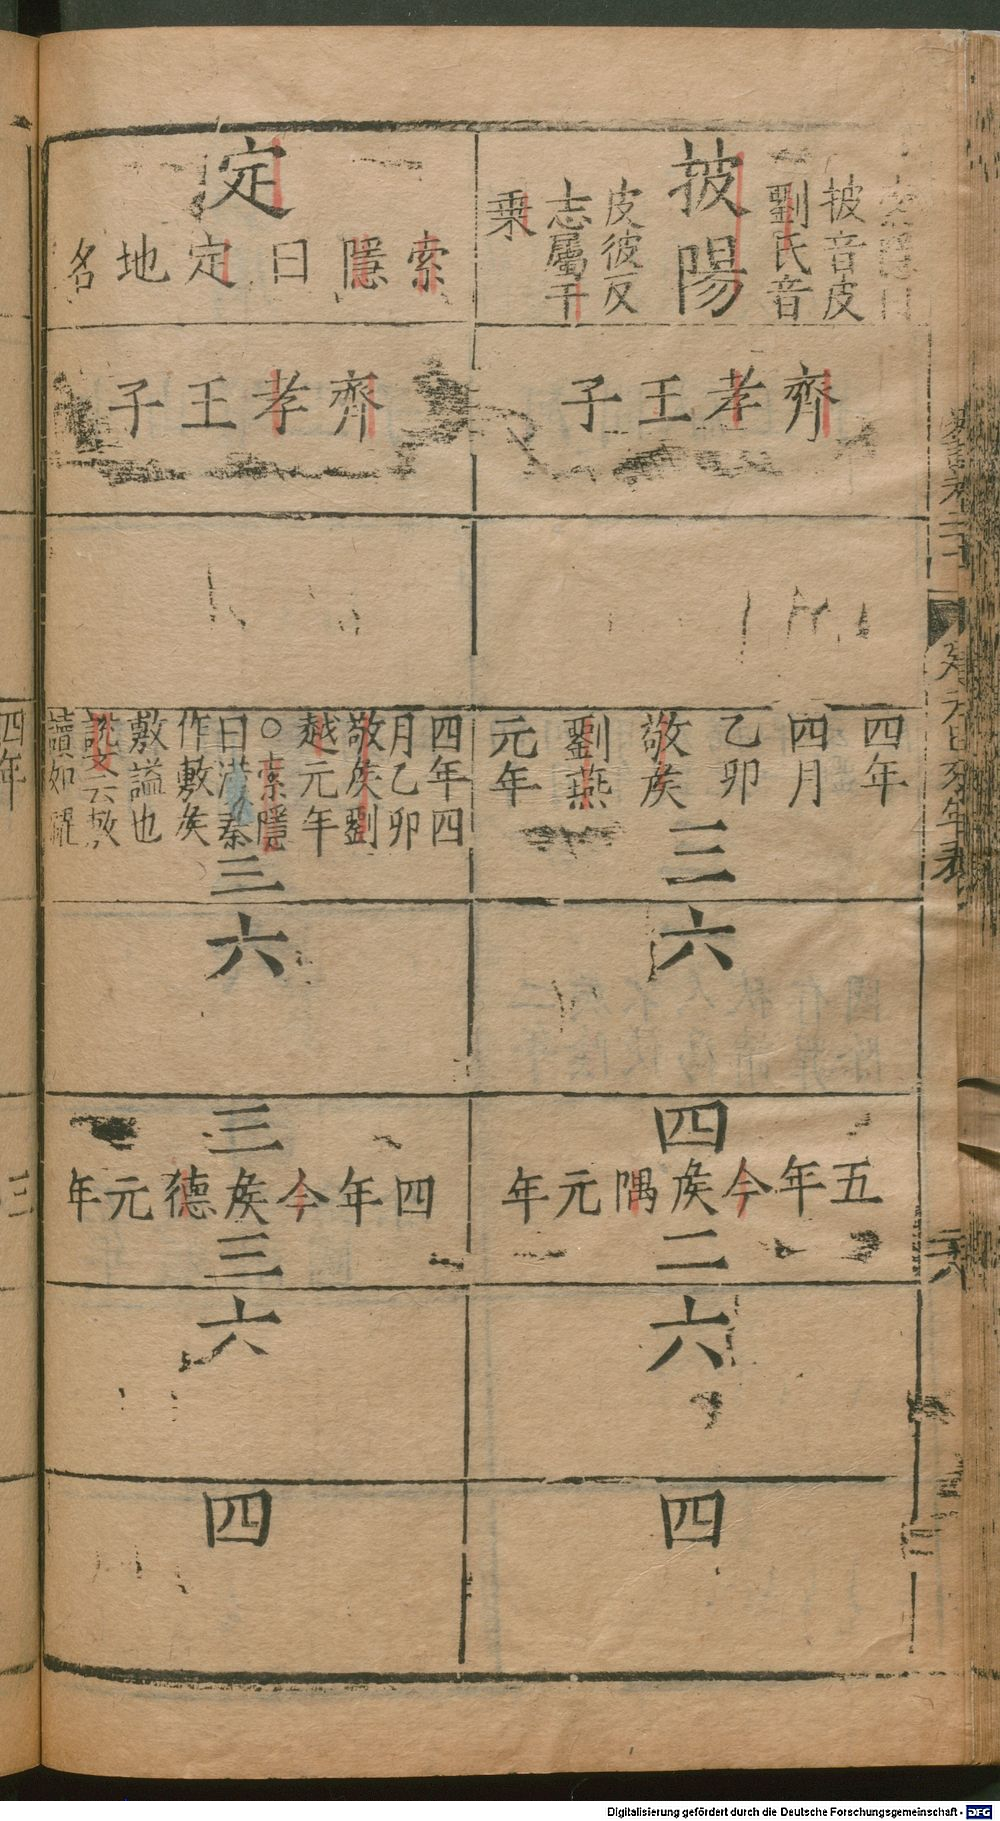 披陽
披音皮
劉氏音
皮彼反
志屬千
乗
齊孝王子
四年
四月
乙卯
敬矦
劉燕
元年
三
六
四
五年今矦隅元年
二
六
四
定
索隱曰定地名
齊孝王子
四年四
月乙卯
敬矦劉
越元年
○索隱
曰漢表
作敷矦
敷謚也
說文云敖
讀如躍
三
六
三
四年今矦德元年
三
六
四
六
四年
三
Digitalisierung gefördert durch die Deutsche Forschungsgemeinschaft - DFG